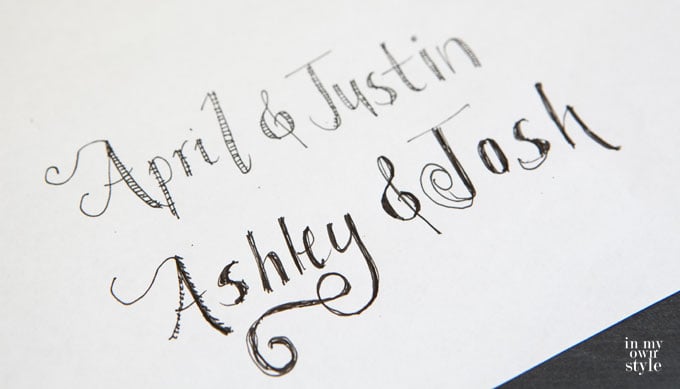 April & Justin
Ashley & Josh
in my
own
style